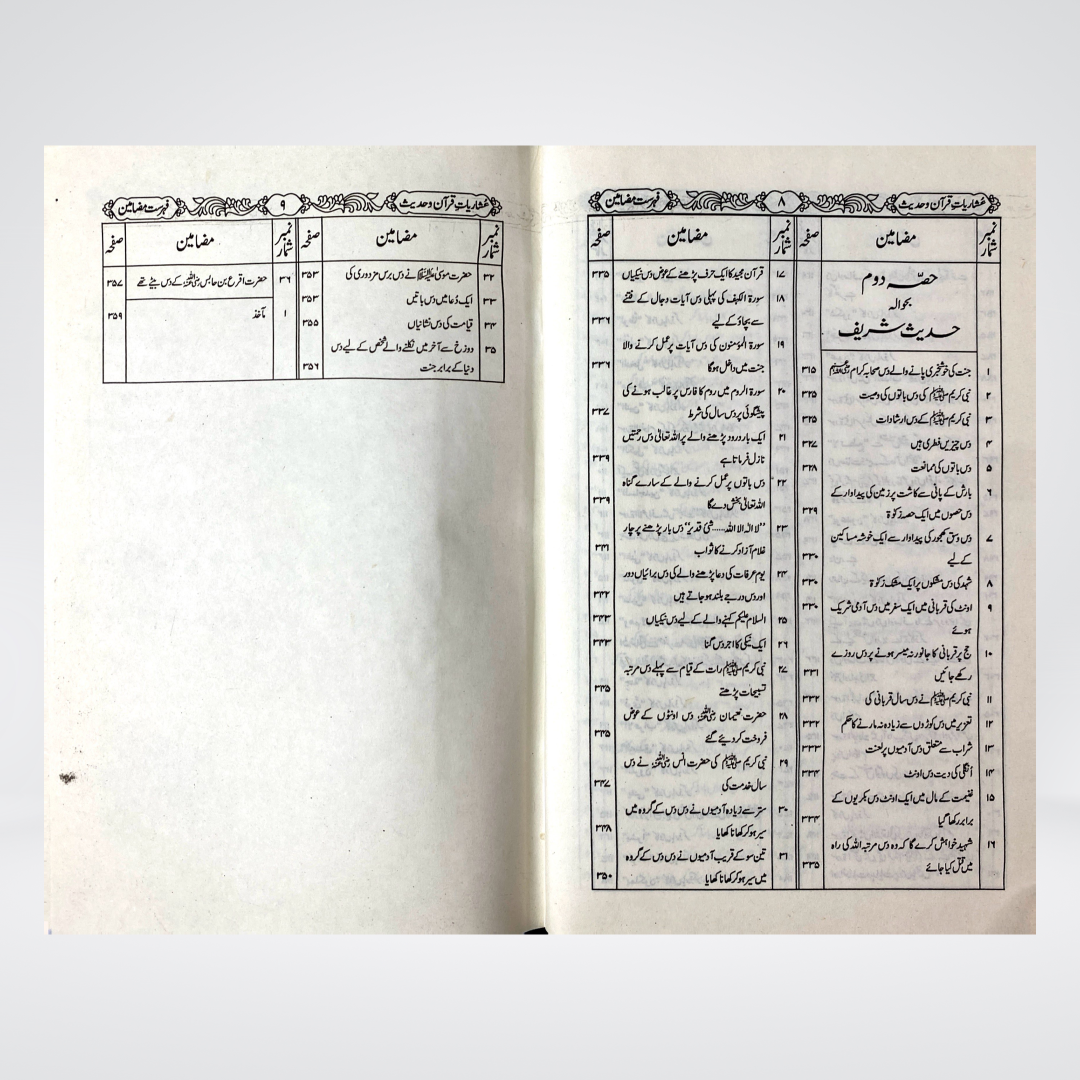 عشاریاتِ قرآن و حدیث
۸
فہرست مضامین
نمبر شمار
مضامین
صفحہ
حصّہ دوم
بحوالہ
حدیث شریف
۱ جنت کی خوشخبری پانے والے دس صحابہ کرام رضی اللہ عنہم ۳۱۵
۲ نبی کریم ﷺ کی دس باتوں کی وصیت ۳۲۵
۳ نبی کریم ﷺ کے دس ارشادات ۳۲۵
۴ دس چیزیں فطری ہیں ۳۲۷
۵ دس باتوں کی ممانعت ۳۲۸
۶ بارش کے پانی سے کاشت پر زمین کی پیداوار کے
دس حصوں میں ایک حصہ زکوٰۃ ۳۲۹
۷ دس وسق کھجور کی پیداوار سے ایک خوشہ مساکین
کے لیے ۳۳۰
۸ شہد کی دس مشکوں پر ایک مشک زکوٰۃ ۳۳۰
۹ اونٹ کی قربانی میں ایک سفر میں دس آدمی شریک
ہوئے ۳۳۰
۱۰ حج پر قربانی کا جانور نہ میسر ہونے پر دس روزے
رکھے جائیں ۳۳۱
۱۱ نبی کریم ﷺ نے دس سال قربانی کی ۳۳۲
۱۲ تعزیر میں دس کوڑوں سے زیادہ نہ مارنے کا حکم ۳۳۲
۱۳ شراب سے متعلق دس آدمیوں پر لعنت ۳۳۳
۱۴ اُنگلی کی دیت دس اونٹ ۳۳۴
۱۵ غنیمت کے مال میں ایک اونٹ دس بکریوں کے
برابر رکھا گیا ۳۳۴
۱۶ شہید خواہش کرے گا کہ وہ دس مرتبہ اللہ کی راہ
میں قتل کیا جائے ۳۳۵
نمبر شمار
مضامین
صفحہ
۱۷ قرآن مجید کا ایک حرف پڑھنے کے عوض دس نیکیاں ۳۳۵
۱۸ سورۃ الکہف کی پہلی دس آیات دجال کے فتنے
سے بچاؤ کے لیے ۳۳۶
۱۹ سورۃ المؤمنون کی دس آیات پر عمل کرنے والا
جنت میں داخل ہوگا ۳۳۶
۲۰ سورۃ الروم میں روم کا فارس پر غالب ہونے کی
پیشگوئی پر دس سال کی شرط ۳۳۷
۲۱ ایک بار درود پڑھنے والے پر اللہ تعالیٰ دس رحمتیں
نازل فرماتا ہے ۳۳۹
۲۲ دس باتوں پر عمل کرنے والے کے سارے گناہ
اللہ تعالیٰ بخش دے گا ۳۳۹
۲۳ ”لا الٰہ الا اللہ.....شئ قدیر“ دس بار پڑھنے پر چار
غلام آزاد کرنے کا ثواب ۳۴۱
۲۴ یوم عرفات کی دعا پڑھنے والے کی دس برائیاں دور
اور دس درجے بلند ہو جاتے ہیں ۳۴۲
۲۵ السلام علیکم کہنے والے کے لیے دس نیکیاں ۳۴۳
۲۶ ایک نیکی کا اجر دس گنا ۳۴۳
۲۷ نبی کریم ﷺ رات کے قیام سے پہلے دس مرتبہ
تسبیحات پڑھتے ۳۴۵
۲۸ حضرت نعیمان رضی اللہ عنہ دس اونٹوں کے عوض
فروخت کر دیے گئے ۳۴۵
۲۹ نبی کریم ﷺ کی حضرت انس رضی اللہ عنہ نے دس
سال خدمت کی ۳۴۷
۳۰ ستر سے زیادہ آدمیوں نے دس دس کے گروہ میں
سیر ہو کر کھانا کھایا ۳۴۸
۳۱ تین سو کے قریب آدمیوں نے دس دس کے گروہ
میں سیر ہو کر کھانا کھایا ۳۵۰
عشاریاتِ قرآن و حدیث
۹
فہرست مضامین
نمبر شمار
مضامین
صفحہ
۳۲ حضرت موسیٰ علیہ السلام نے دس برس مزدوری کی ۳۵۳
۳۳ ایک دُعا میں دس باتیں ۳۵۳
۳۴ قیامت کی دس نشانیاں ۳۵۵
۳۵ دوزخ سے آخر میں نکلنے والے شخص کے لیے دس
دنیا کے برابر جنت ۳۵۶
نمبر شمار
مضامین
صفحہ
۳۶ حضرت اقرع بن حابس رضی اللہ عنہ کے دس بیٹے تھے ۳۵۷
۱ مآخذ ۳۵۹